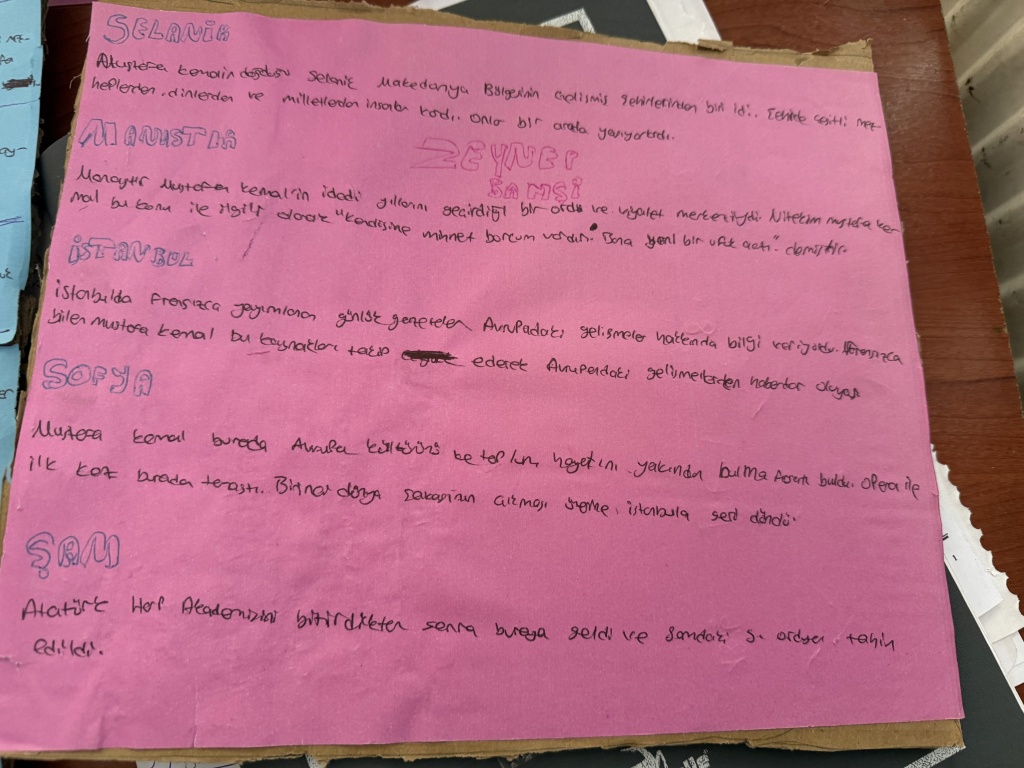 SELANİK
Mustafa kemalin doğduğu Selanik Makedonya Bölgesinin gelişmiş şehirlerinden biri idi. Şehirde çeşitli mez-
heplerden, dinlerden ve milletlerden insanlar vardı. Onlar bir arada yaşıyorlardı.
MANASTIR
ZEYNEP
ŞAMSİ
Manastır Mustafa kemal'in idadi yıllarını geçirdiği bir ordu ve vilayet merkeziydi. Nitekim mustafa ke-
mal bu konu ile ilgili olarak "kendisine minnet borcum vardır. Bana yeni bir ufuk açtı." demiştir.
İSTANBUL
istanbulda Fransızca yayımlanan günlük gazeteler Avrupadaki gelişmeler hakkında bilgi veriyordu. Fransızca
bilen Mustafa kemal bu kaynakları takip ederek Avrupadaki gelişmelerden haberdar oluyor
SOFYA
Mustafa kemal burada Avrupa kültürünü ve toplum hayatını yakından bulma fırsatı buldu. Opera ile
ilk kez burada tanıştı. Birinci dünya savaşının çıkması üzerine istanbula geri döndü.
ŞAM
Atatürk Harp Akademisini bitirdikten sonra buraya geldi ve Şamdaki 5. orduya tahin
edildi.